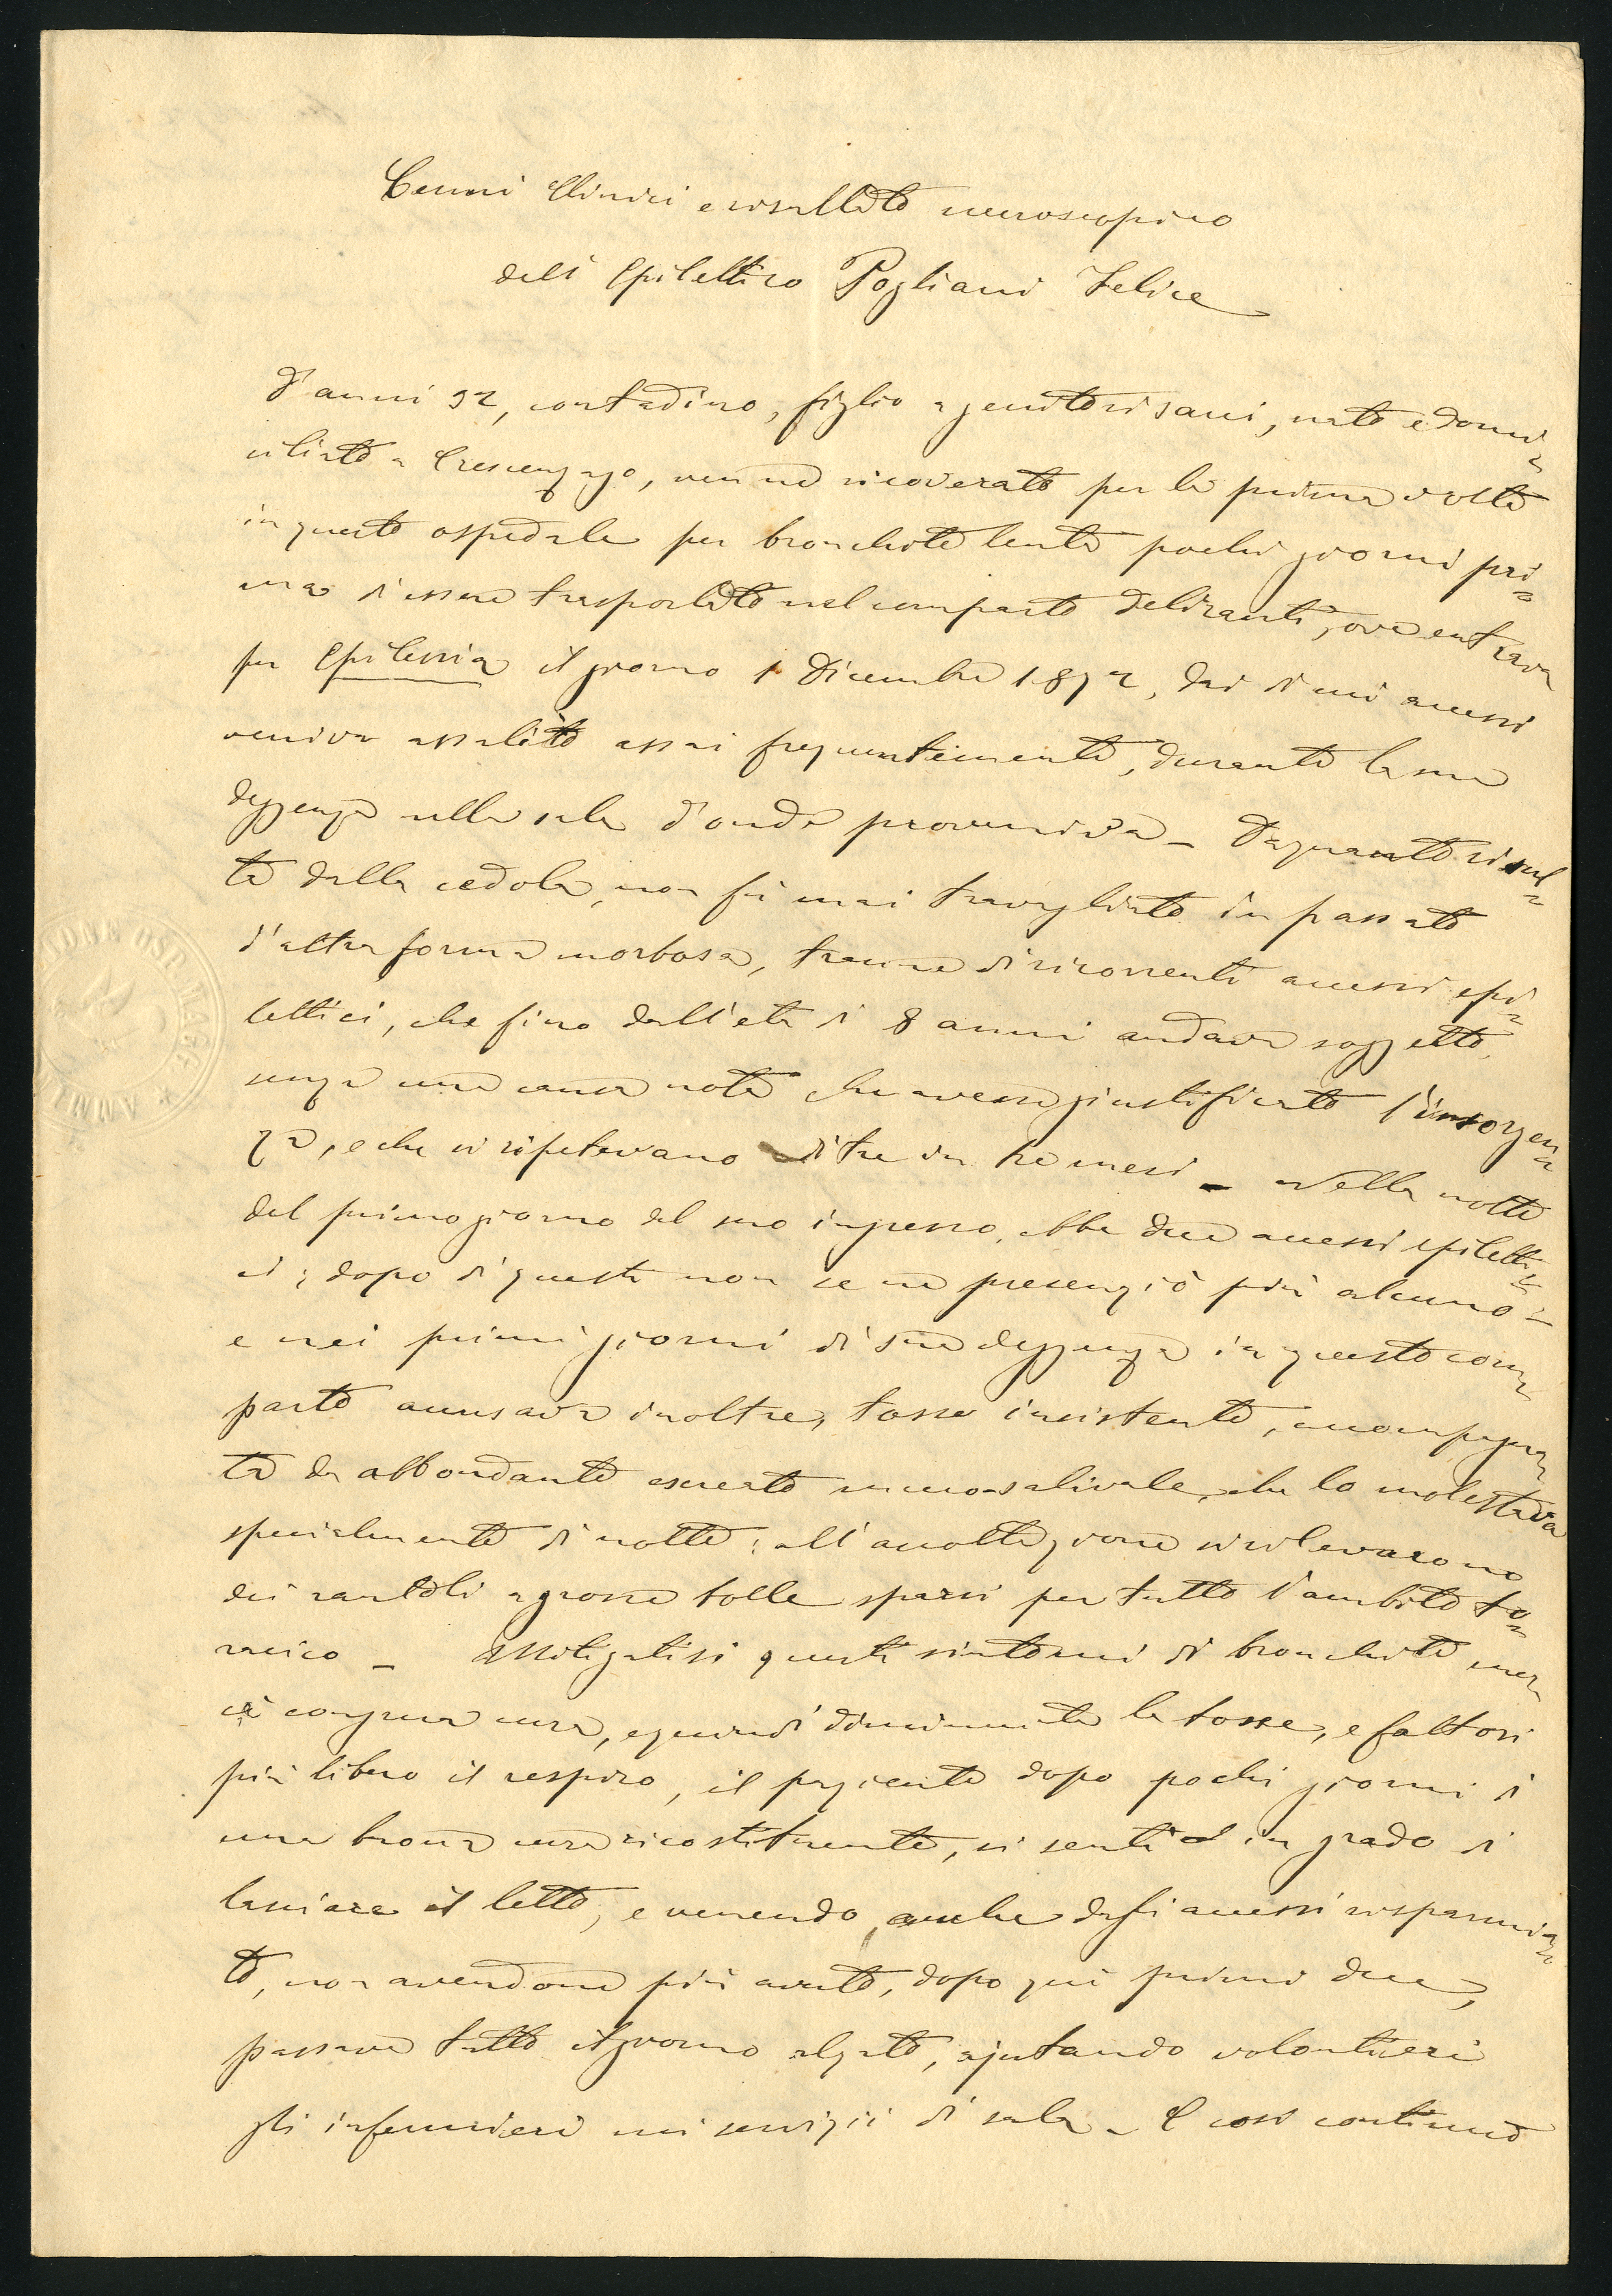 Cenni Clinici e risultato necroscopico
dell'Epilettico Pogliani Felice
D'anni 32, contadino, figlio a genitori sani, nato e domi=
ciliato a Crescenzago, venne ricoverato per la prima volta
in questo ospedale per bronchite lenta pochi giorni pri=
ma d'essere trasportato nel comparto deliranti, ove entrava
per Epilessia il giorno 1 Dicembre 1872, dai di cui accessi
veniva assalito assai frequentemente, durante la sua
degenza nella sala d'onde proveniva - Da quanto risul=
ta dalla cedola, non fù mai travagliato in passato
d'altra forma morbosa, tranne di ricorrenti accessi epi=
lettici, che fino dall'età di 8 anni andava soggetto,
senza una causa nota che avesse giustificato l'insorgen=
za, e che si ripetevano di tre in tre mesi - Nella notte
del primo giorno del suo ingresso, ebbe due accessi epiletti=
ci; dopo di questi non se ne presenziò più alcuno -
e nei primi giorni di sua degenza in questo com=
parto accusava inoltre, tosse insistente, accompagna=
ta da abbondante escreato mucoso-salivale, che lo molestava
specialmente di notte; all'ascoltazione si rilevarono
dei rantoli a grosse bolle sparsi per tutto l'ambito to=
racico - Mitigatisi questi sintomi di bronchite mer=
cè congrua cura, e quindi diminuita la tosse, e fattosi
più libero il respiro, il paziente dopo pochi giorni di
una buona cura ricostituente, si sentì in grado di
lasciare il letto, e venendo anche dagli accessi risparmia=
to, non avendone più avuto, dopo quei primi due,
passava tutto il giorno alzato, ajutando volontieri
gli infermieri nei servizii di sala - E così continuò
OSP. MAGG